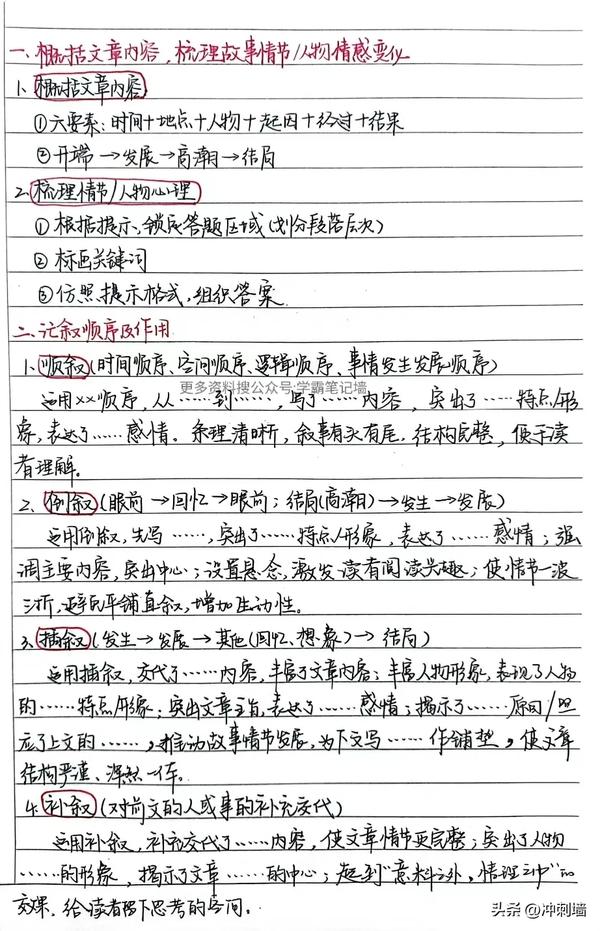 一、概括文章内容,梳理故事情节/人物情感变化
1、概括文章内容
①六要素:时间+地点+人物+起因+经过+结果
②开端→发展→高潮→结局
2、梳理情节/人物心理
①根据提示、锁定答题区域(划分段落层次)
②标画关键词
③仿照提示格式,组织答案
二、记叙顺序及作用
1、顺叙(时间顺序、空间顺序、逻辑顺序、事情发生发展顺序)
更多资料搜公众号:学霸笔记墙
运用××顺序,从……到……,写了……内容,突出了……特点/形
象,表达了……感情。条理清晰,叙事有头有尾,结构完整,便于读
者理解。
2、倒叙(眼前→回忆→眼前;结局(高潮)→发生→发展)
运用倒叙,先写……,突出了……特点/形象,表达了……感情;强
调主要内容,突出中心;设置悬念,激发读者阅读兴趣;使情节一波
三折,避免平铺直叙,增加生动性。
3、插叙(发生→发展→其他(回忆、想象)→结局)
运用插叙,交代了……内容,丰富了文章内容;丰富人物形象,表现了人物
的……特点/形象;突出文章主旨,表达了……感情;揭示了……原因/照
应了上文的……,推动故事情节发展,为下文写……作铺垫,使文章
结构严谨、浑然一体。
4、补叙(对前文的人或事的补充交代)
运用补叙,补充交代了……内容,使文章情节更完整;突出了人物
……的形象,揭示了文章……的中心;起到"意料之外,情理之中"的
效果,给读者留下思考的空间。
头条@冲刺墙